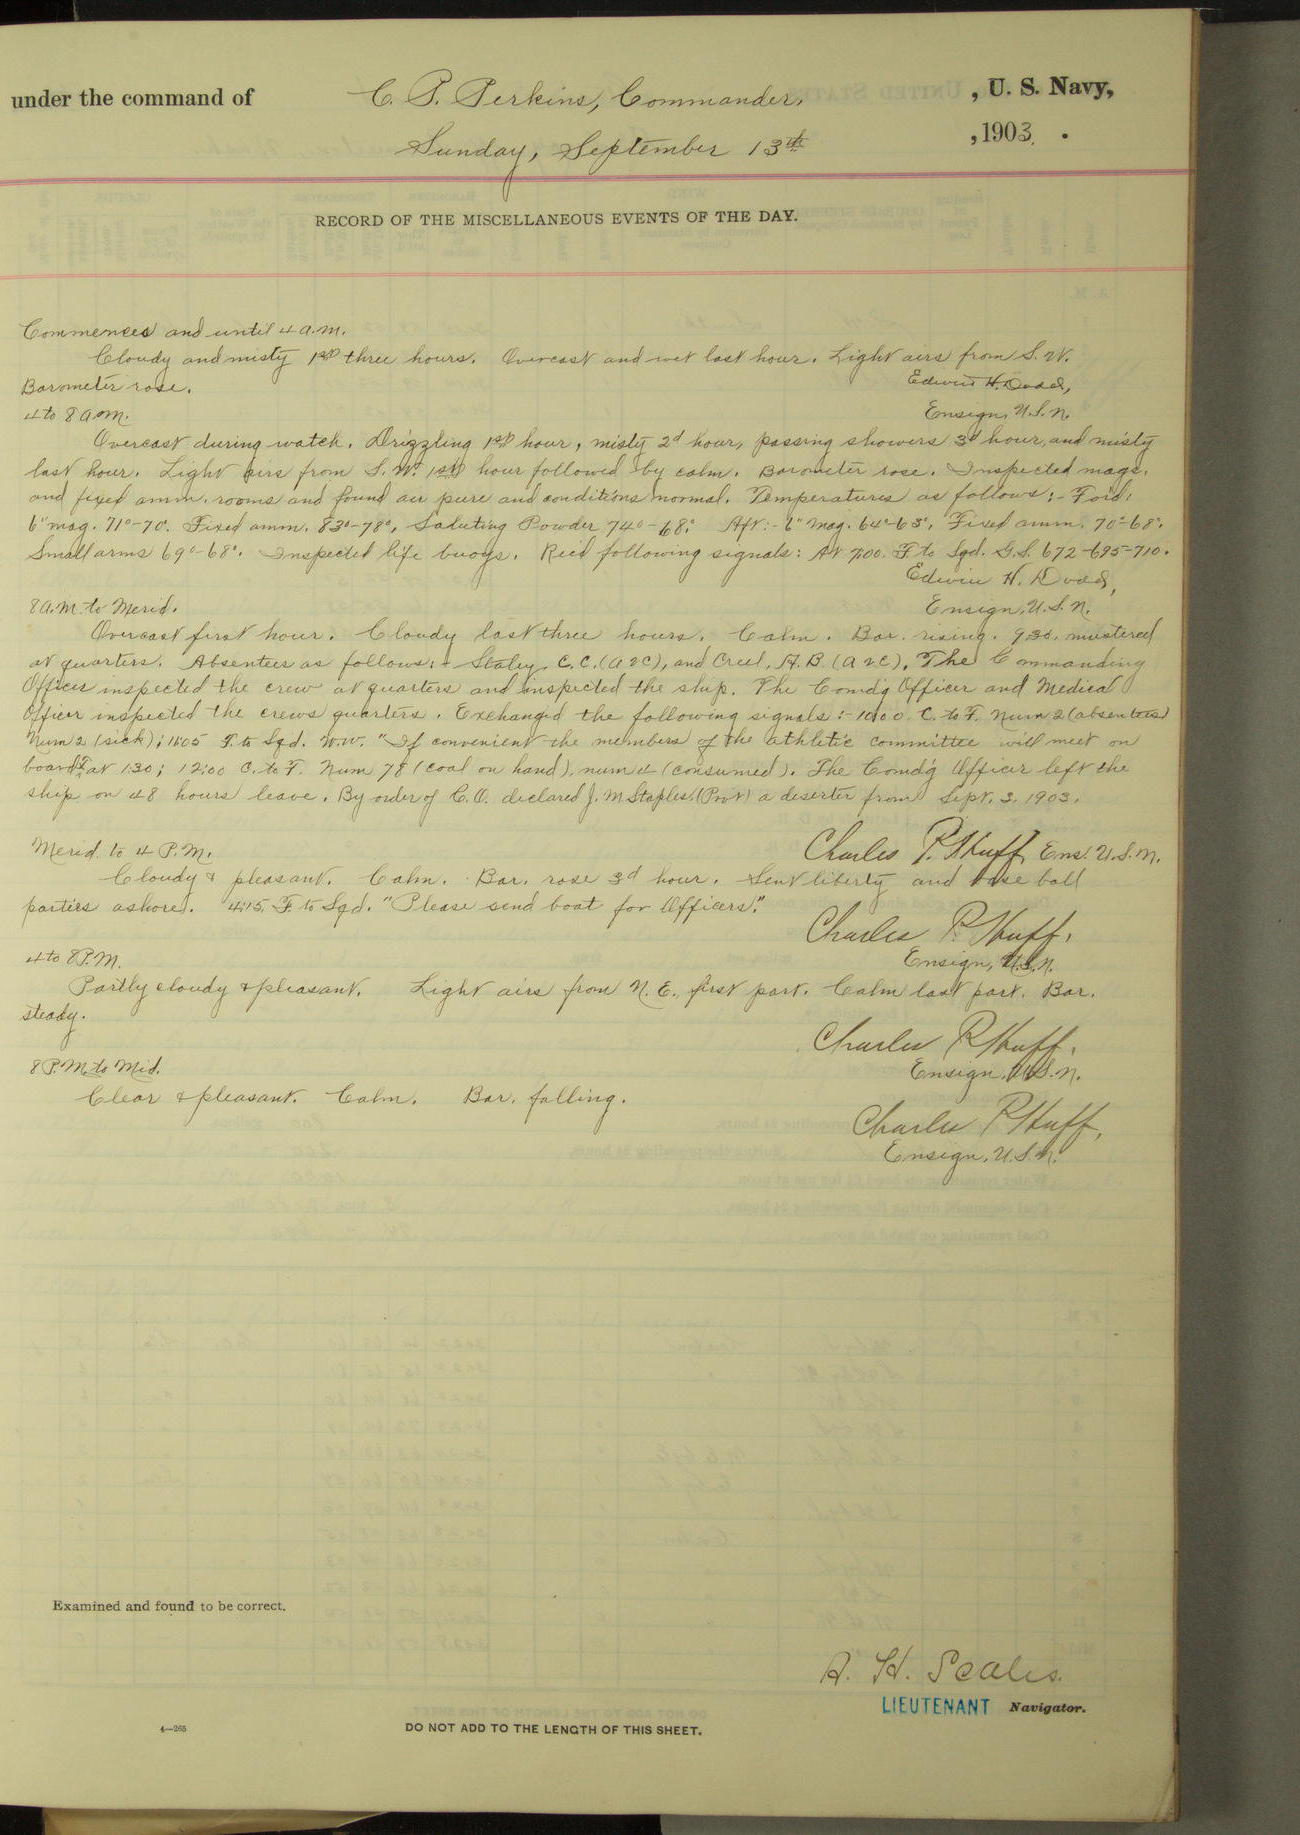 under the command of C. P. Perkins, Commander, , U. S. Navy,
Sunday, September 13th , 1903.
RECORD OF THE MISCELLANEOUS EVENTS OF THE DAY.
Commences and until 4 a.m.
Cloudy and misty 1st three hours. Overcast and wet last hour. Light airs from S.W.
Barometer rose. Edwin H. Dodd,
4 to 8 a.m. Ensign, U.S.N.
Overcast during watch. Drizzling 1st hour, misty 2d hour, passing showers 3d hour, and misty
last hour. Light airs from S.W. 1st hour followed by calm. Barometer rose. Inspected mags.
and fixed amm. rooms and found air pure and conditions normal. Temperatures as follows:- Ford:
6" mag. 71°-70°. Fixed amm. 83°-78°, Saluting Powder 74°-68°. Aft:- 6" Mag. 64°-63°. Fixed amm. 70°-68°.
Small arms 69°-68°. Inspected life buoys. Rec'd following signals: At 7:00. F. to Sqd. G.S. 672-695-710.
Edwin H. Dodd,
8 A.M. to Merid. Ensign, U.S.N.
Overcast first hour. Cloudy last three hours. Calm. Bar. rising. 9:30. mustered
at quarters. Absentees as follows:- Staley, C.C. (a 2c), and Creel, A.B. (a 2c). The Commanding
Officer inspected the crew at quarters and inspected the ship. The Comd'g Officer and Medical
Officer inspected the crews quarters. Exchanged the following signals:- 10:00. C. to F. Num 2 (absentees)
Num 2 (sick); 11:05 F. to Sqd. W.W. "If convenient the members of the athletic committee will meet on
board F. at 1:30; 12:00 C. to F. Num 78 (coal on hand), num 4 (consumed). The Comd'g Officer left the
ship on 48 hours leave. By order of C.O. declared J. M. Staples, (Pvt) a deserter from Sept. 3, 1903.
Charles P. Huff, Ens. U.S.N.
Merid. to 4 P.M.
Cloudy & pleasant. Calm. Bar. rose 3d hour. Sent liberty and base ball
parties ashore. 4:15, F. to Sqd. "Please send boat for Officers."
Charles P. Huff,
4 to 8 P.M. Ensign, U.S.N.
Partly cloudy & pleasant. Light airs from N.E. first part. Calm last part. Bar.
steady.
Charles P. Huff,
8 P.M. to Mid. Ensign, U.S.N.
Clear & pleasant. Calm. Bar. falling.
Charles P. Huff,
Ensign, U.S.N.
Examined and found to be correct.
A. H. Scales.
LIEUTENANT Navigator.
4—265
DO NOT ADD TO THE LENGTH OF THIS SHEET.